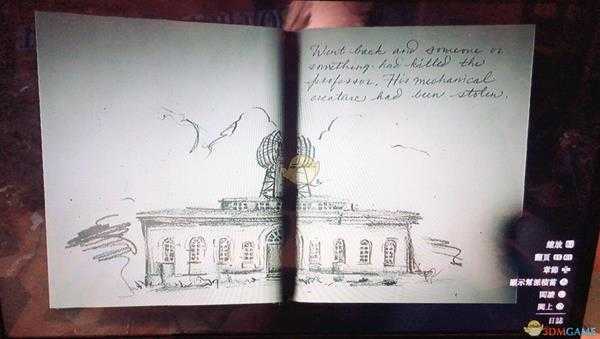 Went back and someone or
something had killed the
professor. His mechanical
creature had been stolen.
縮放
翻頁
章節
顯示
閱讀
闔上
日誌
3DMGAME